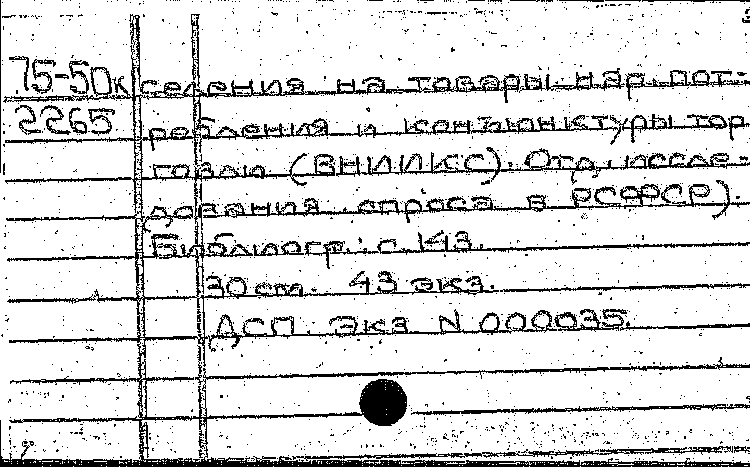 75-50к селения на товары нар. пот-
2265 ребления и конъюнктуры тор
говли (ВНИИКС). Отд. иссле-
дования спроса в РСФСР).
Библиогр.: с. 143.
30 см. 43 экз.
ДСП. Экз N 000035.